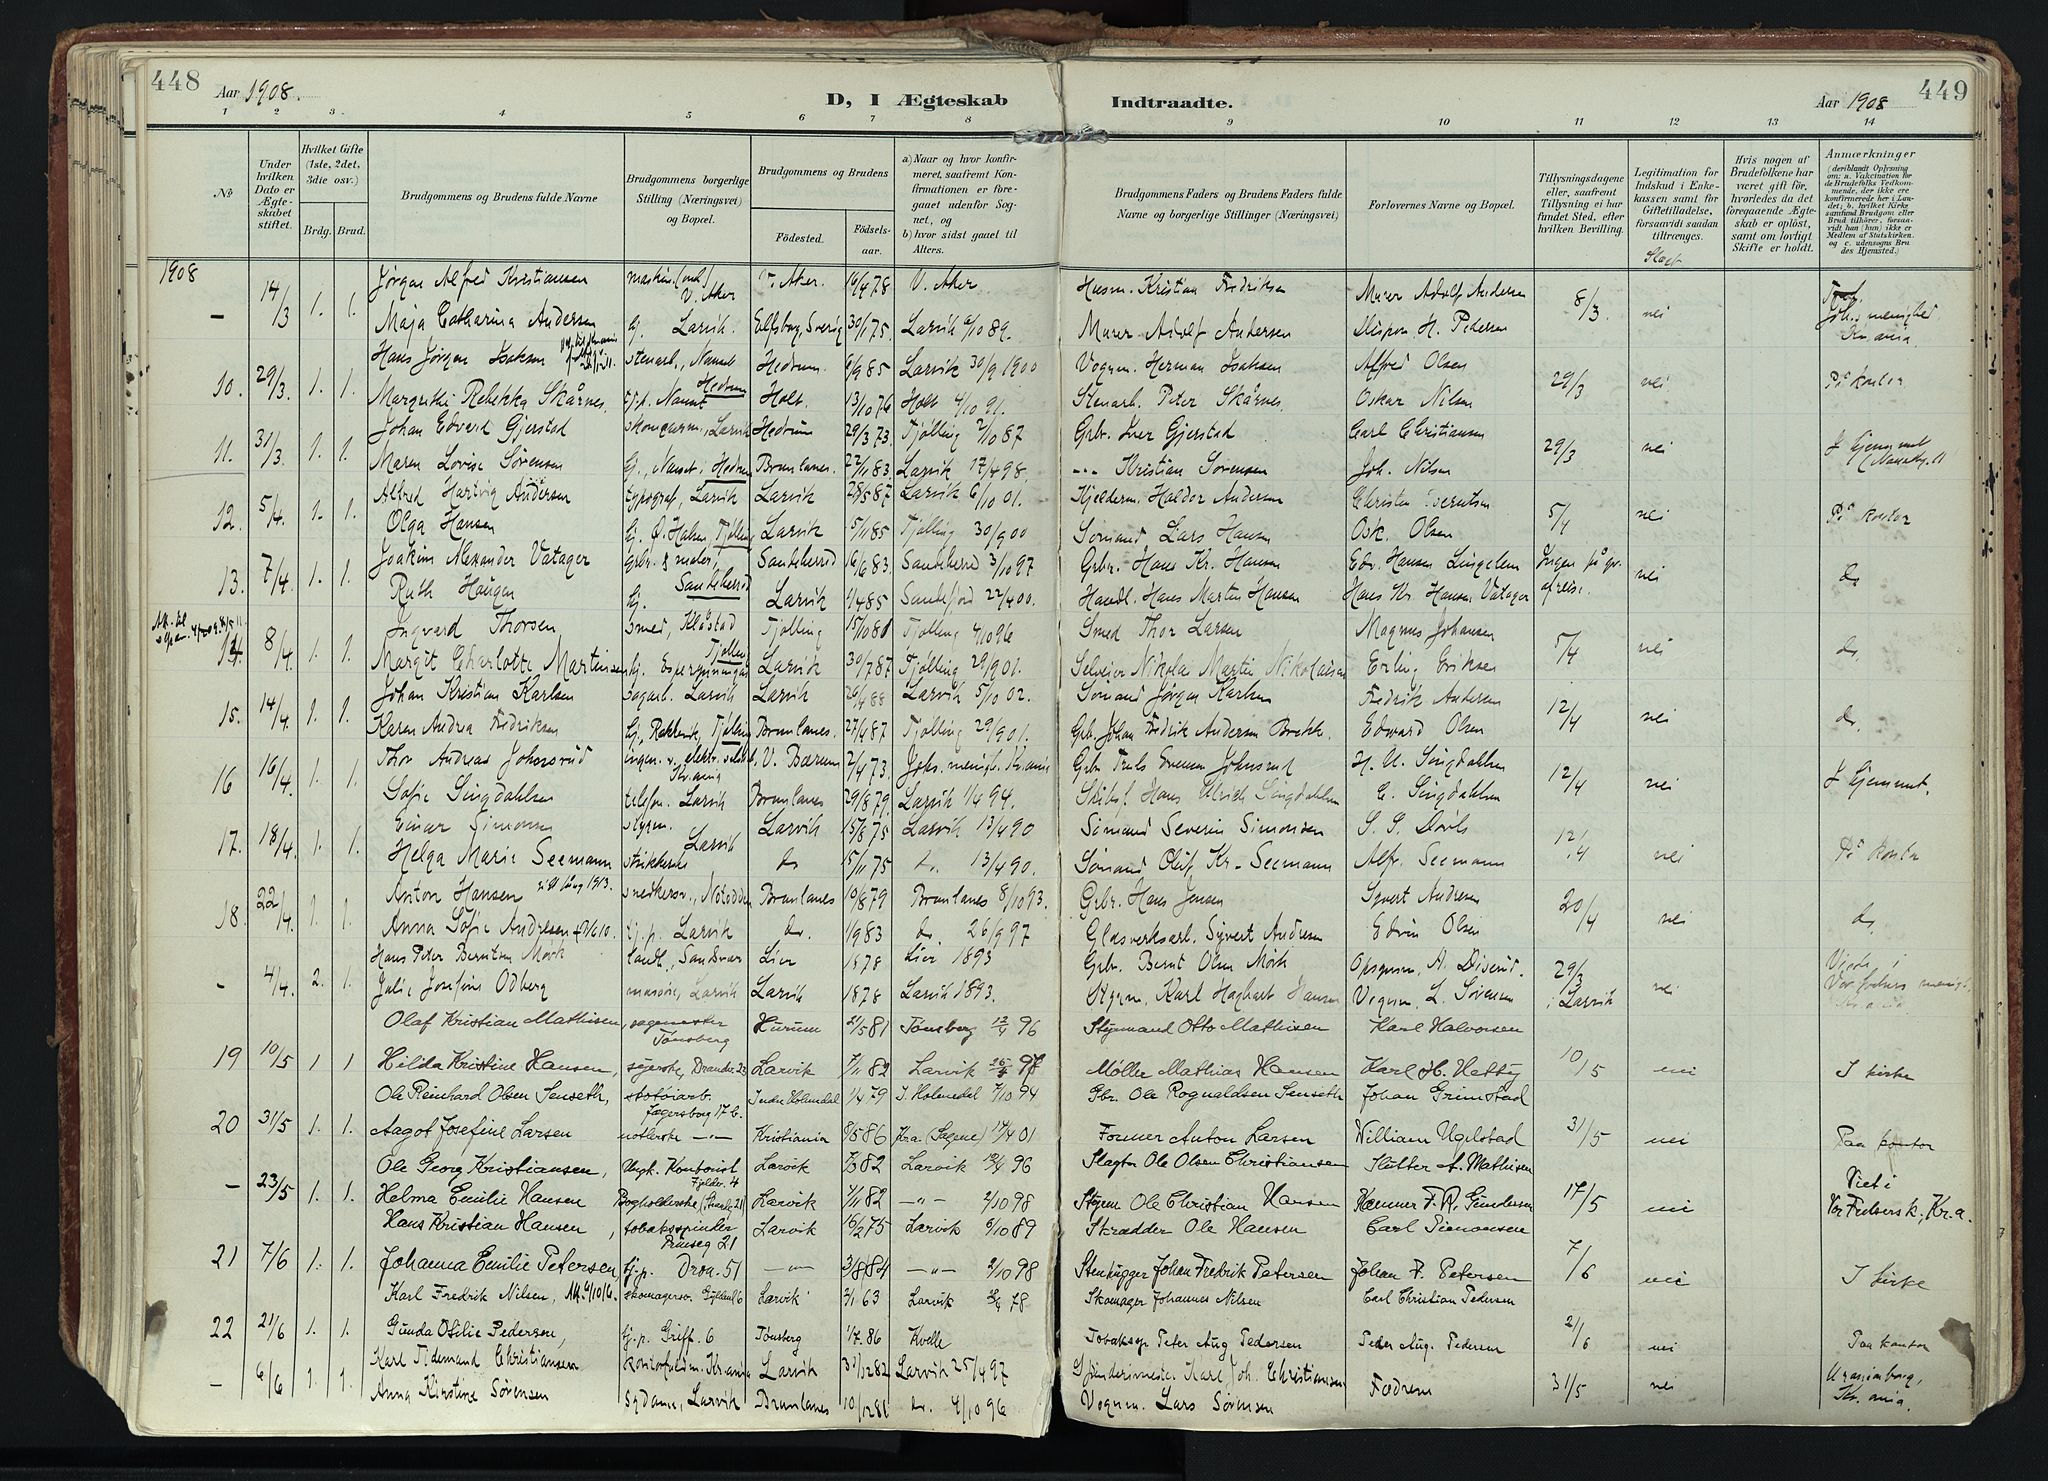 448
Aar 1908.
D, I Ægteskab
Indtraadte.
Aar 1908
449
1 2 3 4 5 6 7 8 9 10 11 12 13 14
No
Under hvilken Dato er Ægteskabet stiftet.
Hvilket Gifte (1ste, 2det, 3die osv.)
Brdg. Brud.
Brudgommens og Brudens fulde Navne
Brudgommens borgerlige Stilling (Næringsvei) og Bopæl.
Brudgommens og Brudens
Fødested.
Fødselsaar.
a) Naar og hvor konfirmeret, saafremt Konfirmationen er foregaaet udenfor Sognet, og
b) hvor sidst gaaet til Alters.
Brudgommens Faders og Brudens Faders fulde Navne og borgerlige Stillinger (Næringsvei)
Forlovernes Navne og Bopæl.
Tillysningsdagene eller, saafremt Tillysning ei har fundet Sted, efter hvilken Bevilling.
Legitimation for Indskud i Enkekassen samt for Giftetilladelse, forsaavidt saadan tiltrænges.
Hvis nogen af Brudefolkene har været gift før, hvorledes da det foregaaende Ægteskab er opløst, samt om lovligt Skifte er holdt.
Anmærkninger
(deriblandt Oplysning om: a. Vakcination for de Brudefolks Vedkommende, der ikke ere konfirmerede her i Landet; b. hvilket Kirkesamfund Brudgom eller Brud tilhører, forsaavidt han (hun) ikke er Medlem af Statskirken og c. udensogns Brudes Hjemsted.)
1908
– 14/3 1. 1. Jørgen Alfred Kristiansen V. Aker V. Aker. 16/4 78 V. Aker Husm. Kristian Fredriksen Murer Adolf Andersen 8/3. nei
Maja Catharina Andersen tj. Larvik. Elfsborg, Sverig 30/1 75 Larvik 6/10 89. Murer Adolf Andersen H. Pedersen Joh. menighed Kr.ania
10. 29/3. 1. 1. Hans Jørgen Isaksen stenarb., Nanset Hedrum Hedrum. 9/9 85 Larvik 30/9 1900 Vognm. Herman Isaksen Alfred Olsen 29/3 nei På kontor
Margrethe Rebekka Skårnes. tj.p. Nanset Holt. 13/10 76 Holt 4/10 91. Stenarb. Peter Skårnes Oskar Nilsen
11. 31/3. 1. 1. Johan Edvard Gjerstad Larvik Hedrum 29/3 73. Tjølling 2/10 87 Grbr. Iver Gjerstad Carl Christiansen 29/3 nei I hjemmet
Maren Lovise Sørensen tj., Nanset i Hedrum Brunlanes. 22/11 83 Larvik 17/4 98. --- Kristian Sørensen Joh. Nilsen
12. 5/4. 1. 1. Alfred Hartvig Andersen typograf, Larvik Larvik 28/5 87 Larvik 6/10 01. Kjelderm. Haldor Andersen 5/4 nei På kontor
Olga Hansen tj. Ø. Halsen, Tjølling Larvik 5/11 85 Tjølling 30/9 00 Sømand Lars Hansen Osk. Olsen
13. 7/4. 1. 1. Joakim Alexander Vatager Grbr. & maler, Sandeherred Sandeherred 16/6 83. Sandeherred 3/10 97 Grbr. Hans Kr. Hansen Edv. Hansen Lingelem Ingen på gr. afreise. nei do.
Ruth Haugen tj. Larvik 1/4 85 Sandefjord 22/4 00. Handl. Hans Martin Hansen Hans Kr. Hansen Vatager
14. 8/4. 1. 1. Ingvard Thorsen Smed, Klåstad Tjølling Tjølling 15/10 81 Tjølling 4/10 96 Smed Thor Larsen Magnus Johansen 5/4 nei do.
Margit Charlotte Martinsen tj. Larvik 30/7 87 Tjølling 29/9 01. Selveier Nikolai Martin Nikolaisen Erling Eriksen
15. 14/4. 1. 1. Johan Kristian Karlsen sagarb. Larvik Larvik 26/4 88 Larvik 5/10 02. Sømand Jørgen Karlsen Fredrik Andersen 12/4 nei do.
Karen Andrea Fredriksen tj., Rekkevik, Tjølling Brunlanes. 27/4 87 Tjølling 29/9 01. Grb. Johan Fredrik Andersen Brekke. Edvard Olsen
16 16/4. 1. 1. Thor Andreas Johnsrud Kr.ania V. Bærum 2/4 73. Joh. menigh. Kr.ania Grbr. Truls Evensen Johnsrud H. U. Singdahlsen 12/4 nei I hjemmet.
Sofie Singdahlsen telefon. Larvik Brunlanes 29/8 79. Larvik 1/4 94. Skibsf. Hans Ulrich Singdahlsen C. Singdahlsen
17. 18/4. 1. 1. Einar Simonsen stygm. Larvik Larvik 15/8 75 Larvik 13/4 90 Sømand Severin Simonsen 12/4 nei På kontor
Helga Marie Seemann strikkerske do 15/11 75 do. 13/4 90. Sømand Oluf Kr. Seemann Alfr. Seemann
18. 22/4. 1. 1. Anton Hansen snedkersv., Notodden Brunlanes 10/8 79 Brunlanes 8/10 93. Grbr. Hans Jensen Syvert Andresen 20/4 nei do.
Anna Sofie Andresen tj.p. Larvik do. 1/9 83 do. 26/9 97 Glasverksarb. Syvert Andresen Edvin Olsen
– 4/4. 2. 1. Hans Peter Berntsen Mørk landh., Sandsvær Lier 1878 Lier 1893 Grbr. Bernt Olsen Mørk Opsynsm. A. Diserud. 29/3 i Larvik nei Viede i Vor frelsers menigh. Kr.a
Julie Josefine Odberg masøse, Larvik Larvik 1878 Larvik 1893. Stygm. Karl Hagbart Hansen Vognm. L. Sørensen
19 10/5 1 1 Olaf Kristian Mathisen, sagmester Tønsberg Hurum 21/5 81 Tønsberg 12/4 96 Styrmand Otto Mathisen Karl Halvorsen 10/5 nei I kirke
Hilda Kristine Hansen, syerske, Dronnr. 23 Larvik 7/11 82 Larvik 25/4 97 Møller Mathias Hansen Karl H. Hetty
20 31/5 1. 1. Ole Reinhard Olsen Senseth, skotøiarb. Jegersborg 17 b. Indre Holmedal 1/4 79 I. Holmedal 7/10 94 Gbr. Ole Rognaldsen Senseth Johan Grimstad 31/5 nei Paa kontor
Aagot Josefine Larsen notlerske –"– Kristiania 8/5 86 Kra. (Sagene) 14/4 01 Former Anton Larsen William Ugelstad
– 23/5 1. 1. Ole Georg Kristiansen, Ungk. Kontorist Fjeldv. 4 Larvik 7/3 82 Larvik 12/4 96 Slagter Ole Olsen Christiansen Slutter A. Mathisen 17/5 nei Viet i Vor Frelsers k, Kr.a.
Helma Emilie Hansen Bogholderske (Strandg. 21) Larvik 7/11 82 –"– 2/10 98 Styrm Ole Christian Hansen Kæmner F. A. Gundersen
21 7/6 1. 1. Hans Kristian Hansen, tobaksspinder Prinseg 21 Larvik 16/2 75 Larvik 6/10 89 Skrædder Ole Hansen Carl Simonsen 7/6 nei I kirke
Johanna Emilie Petersen tj.p. Dron. 51 –"– 3/8 84 –"– 2/10 98 Stenhugger Johan Fredrik Petersen Johan F. Petersen
22 21/6 1. 1. Karl Fredrik Nilsen, skomagersv. Larvik 2/1 63 Larvik 78 Skomager Johannes Nilsen Carl Christian Pedersen 21/6 nei Paa kontor
Gunda Otilie Pedersen, tj.p. Griff. 6 Tønsberg 1/7. 86 Kvelle Tobaksp Peter Aug Pedersen Peder Aug. Pedersen
– 6/6 1. 1. Karl Tidemand Christiansen kontorfuldm. Kr.ania Larvik 31/12 82 Larvik 25/4 97 Karl Joh. Christiansen Fædrene 31/5 nei Uranienborg, Kr.ania.
Anna Kirstine Sørensen Sydame, Larvik Brunlanes 10/12 81 do. 4/10 96 Vognm. Lars Sørensen